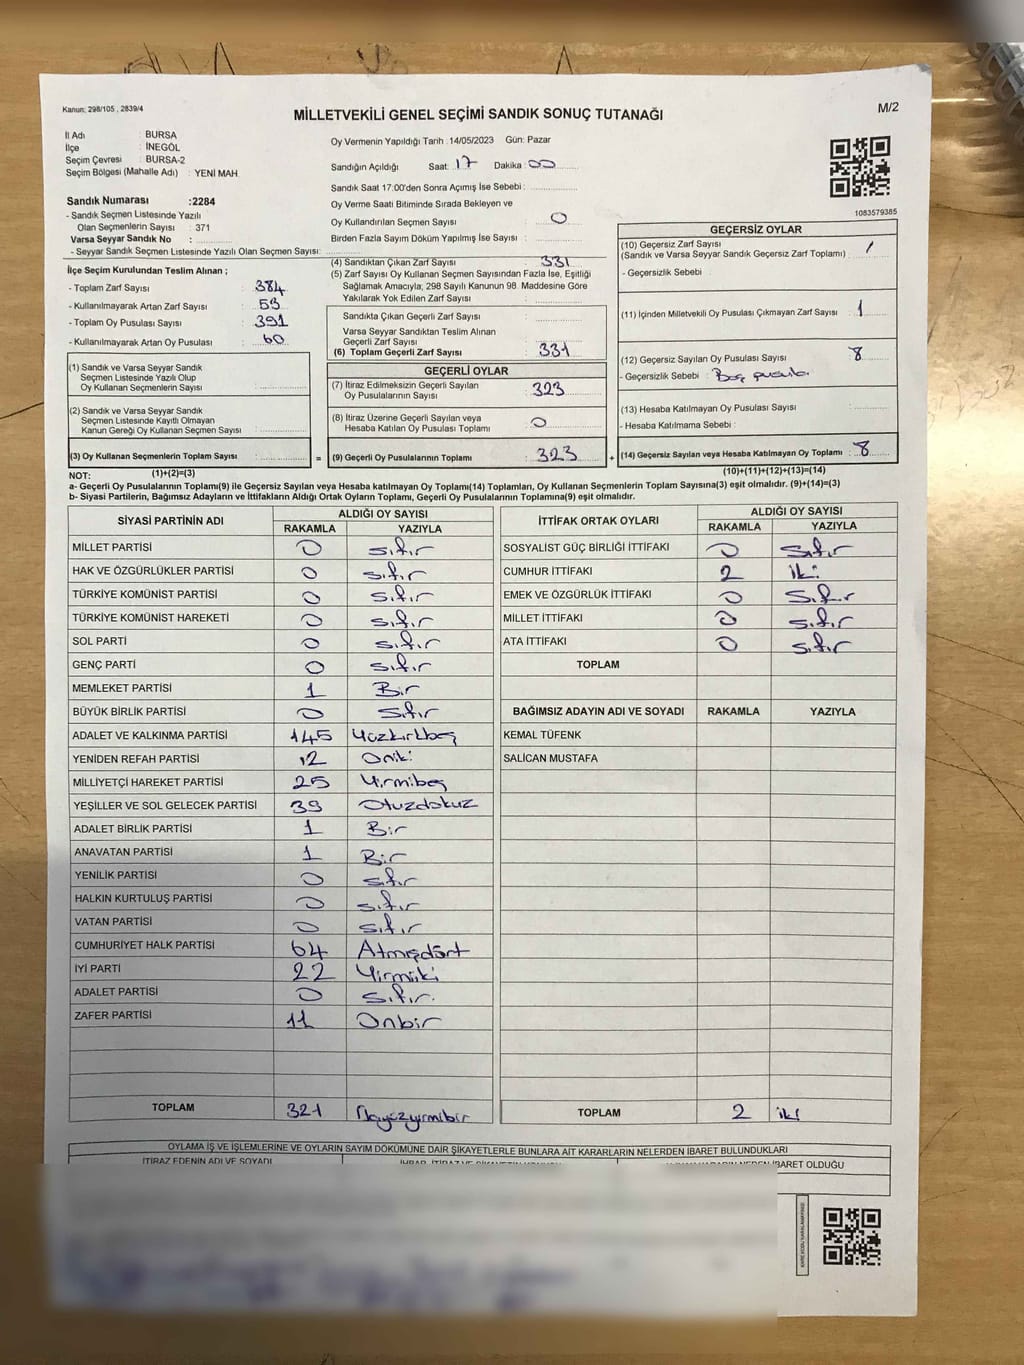 Kanun: 298/105 , 2839/4
MİLLETVEKİLİ GENEL SEÇİMİ SANDIK SONUÇ TUTANAĞI
M/2
İl Adı : BURSA
İlçe : İNEGÖL
Seçim Çevresi : BURSA-2
Seçim Bölgesi (Mahalle Adı) : YENİ MAH.
Sandık Numarası :2284
- Sandık Seçmen Listesinde Yazılı
Olan Seçmenlerin Sayısı : 371
Varsa Seyyar Sandık No :
- Seyyar Sandık Seçmen Listesinde Yazılı Olan Seçmen Sayısı:
İlçe Seçim Kurulundan Teslim Alınan ;
- Toplam Zarf Sayısı : 384
- Kullanılmayarak Artan Zarf Sayısı : 53
- Toplam Oy Pusulası Sayısı : 391
- Kullanılmayarak Artan Oy Pusulası : 60
(1) Sandık ve Varsa Seyyar Sandık
Seçmen Listesinde Yazılı Olup
Oy Kullanan Seçmenlerin Sayısı :
(2) Sandık ve Varsa Seyyar Sandık
Seçmen Listesinde Kayıtlı Olmayan
Kanun Gereği Oy Kullanan Seçmen Sayısı :
(3) Oy Kullanan Seçmenlerin Toplam Sayısı :
Oy Vermenin Yapıldığı Tarih :14/05/2023 Gün: Pazar
Sandığın Açıldığı Saat: 17 Dakika : 00
Sandık Saat 17:00'den Sonra Açımış İse Sebebi :
Oy Verme Saati Bitiminde Sırada Bekleyen ve
Oy Kullandırılan Seçmen Sayısı : 0
Birden Fazla Sayım Döküm Yapılmış İse Sayısı :
(4) Sandıktan Çıkan Zarf Sayısı : 331
(5) Zarf Sayısı Oy Kullanan Seçmen Sayısından Fazla İse, Eşitliği
Sağlamak Amacıyla; 298 Sayılı Kanunun 98. Maddesine Göre
Yakılarak Yok Edilen Zarf Sayısı :
Sandıkta Çıkan Geçerli Zarf Sayısı :
Varsa Seyyar Sandıktan Teslim Alınan
Geçerli Zarf Sayısı :
(6) Toplam Geçerli Zarf Sayısı : 331
GEÇERLİ OYLAR
(7) İtiraz Edilmeksizin Geçerli Sayılan
Oy Pusulalarının Sayısı : 323
(8) İtiraz Üzerine Geçerli Sayılan veya
Hesaba Katılan Oy Pusulası Toplamı : 0
= (9) Geçerli Oy Pusulalarının Toplamı : 323 +
1083579385
GEÇERSİZ OYLAR
(10) Geçersiz Zarf Sayısı : /
(Sandık ve Varsa Seyyar Sandık Geçersiz Zarf Toplamı)
- Geçersizlik Sebebi :
(11) İçinden Milletvekili Oy Pusulası Çıkmayan Zarf Sayısı : 1
(12) Geçersiz Sayılan Oy Pusulası Sayısı : 8
- Geçersizlik Sebebi : Boş pusula
(13) Hesaba Katılmayan Oy Pusulası Sayısı :
- Hesaba Katılmama Sebebi :
(14) Geçersiz Sayılan veya Hesaba Katılmayan Oy Toplamı : 8
NOT: (1)+(2)=(3) (10)+(11)+(12)+(13)=(14)
a- Geçerli Oy Pusulalarının Toplamı(9) ile Geçersiz Sayılan veya Hesaba Katılmayan Oy Toplamı(14) Toplamları, Oy Kullanan Seçmenlerin Toplam Sayısına(3) eşit olmalıdır. (9)+(14)=(3)
b- Siyasi Partilerin, Bağımsız Adayların ve İttifakların Aldığı Ortak Oyların Toplamı, Geçerli Oy Pusulalarının Toplamına(9) eşit olmalıdır.
SİYASİ PARTİNİN ADI ALDIĞI OY SAYISI
RAKAMLA YAZIYLA
MİLLET PARTİSİ 0 sıfır
HAK VE ÖZGÜRLÜKLER PARTİSİ 0 sıfır
TÜRKİYE KOMÜNİST PARTİSİ 0 sıfır
TÜRKİYE KOMÜNİST HAREKETİ 0 sıfır
SOL PARTİ 0 sıfır
GENÇ PARTİ 0 sıfır
MEMLEKET PARTİSİ 1 Bir
BÜYÜK BİRLİK PARTİSİ 0 Sıfır
ADALET VE KALKINMA PARTİSİ 145 Yüzkırkbeş
YENİDEN REFAH PARTİSİ 12 Oniki
MİLLİYETÇİ HAREKET PARTİSİ 25 Yirmibeş
YEŞİLLER VE SOL GELECEK PARTİSİ 39 Otuzdokuz
ADALET BİRLİK PARTİSİ 1 Bir
ANAVATAN PARTİSİ 1 Bir
YENİLİK PARTİSİ 0 sıfır
HALKIN KURTULUŞ PARTİSİ 0 sıfır
VATAN PARTİSİ 0 sıfır
CUMHURİYET HALK PARTİSİ 64 Atmışdört
İYİ PARTİ 22 Yirmiiki
ADALET PARTİSİ 0 sıfır.
ZAFER PARTİSİ 11 Onbir
TOPLAM 321
İTTİFAK ORTAK OYLARI ALDIĞI OY SAYISI
RAKAMLA YAZIYLA
SOSYALİST GÜÇ BİRLİĞİ İTTİFAKI 0 Sıfır
CUMHUR İTTİFAKI 2 iki
EMEK VE ÖZGÜRLÜK İTTİFAKI 0 Sıfır
MİLLET İTTİFAKI 0 sıfır
ATA İTTİFAKI 0 sıfır
TOPLAM
BAĞIMSIZ ADAYIN ADI VE SOYADI RAKAMLA YAZIYLA
KEMAL TÜFENK
SALİCAN MUSTAFA
TOPLAM 2 iki
OYLAMA İŞ VE İŞLEMLERİNE VE OYLARIN SAYIM DÖKÜMÜNE DAİR ŞİKAYETLERLE BUNLARA AİT KARARLARIN NELERDEN İBARET BULUNDUKLARI
İTİRAZ EDENİN ADI VE SOYADI
İBARET OLDUĞU